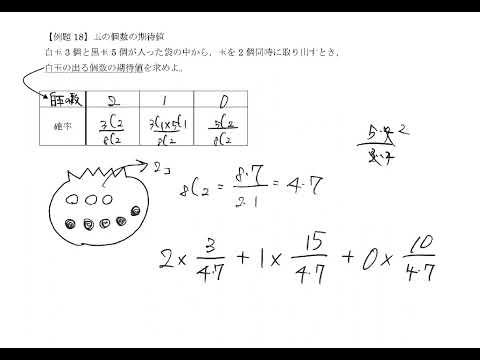 【例題 18】玉の個数の期待値
白玉 3 個と黒玉 5 個が入った袋の中から，玉を 2 個同時に取り出すとき，
白玉の出る個数の期待値を求めよ。
白玉の数 2 1 0
確率 3C2/8C2 3C1×5C1/8C2 5C2/8C2
2コ
8C2 = 8·7/2·1 = 4·7
2 × 3/4·7 + 1 × 15/4·7 + 0 × 10/4·7